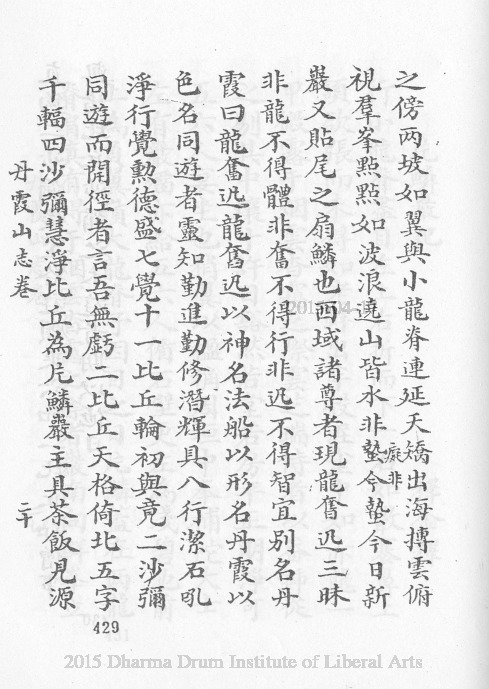 之傍两坡如翼與小龍脊連延夭矯出海搏雲俯
視羣峯點點如波浪遶山皆水非蟄今蟄今日新
癡非
巖又貼尾之扇鱗也西域諸尊者現龍奮迅三昧
非龍不得體非奮不得行非迅不得智宜別名丹
霞曰龍奮迅龍奮迅以神名法船以形名丹霞以
色名同遊者靈知勤進勤修潛輝具八行潔石吼
淨行覺勲德盛七覺十一比丘輪初與竟二沙彌
同遊而開徑者言吾無虧二比丘天格倚北五字
千輻四沙彌慧淨比丘為片鱗巖主具茶飯見源
丹霞山志卷
二十
429
2015 Dharma Drum Institute of Liberal Arts